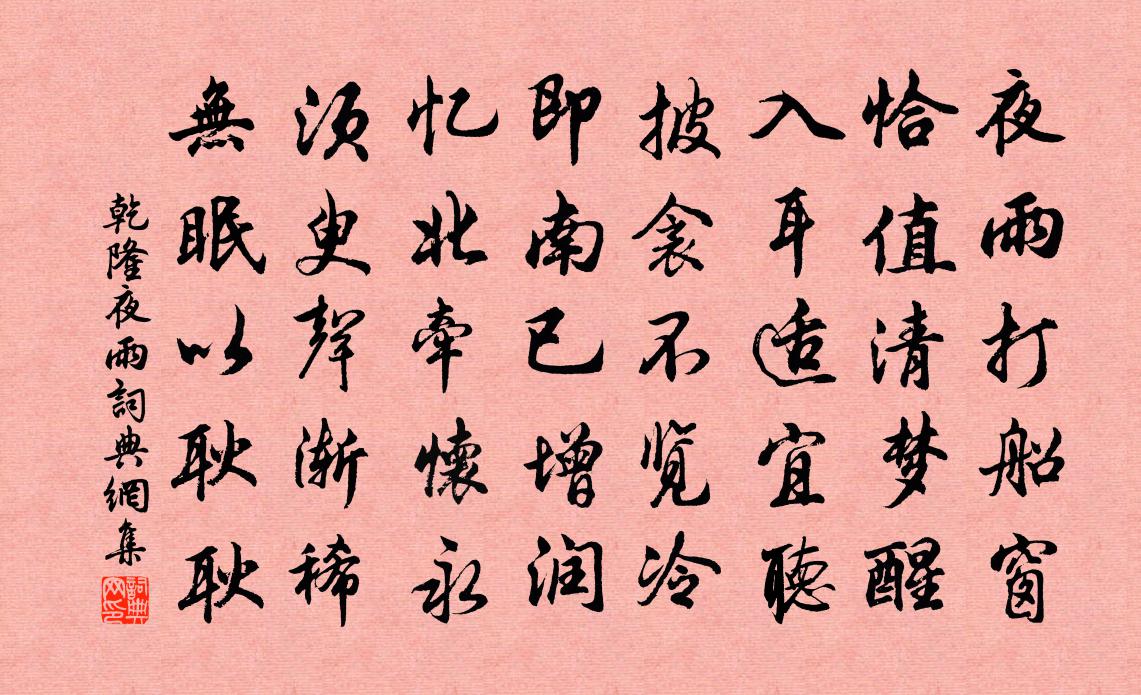 夜雨打船窗
恰值清梦醒
入耳适宜聽
披衾不覽冷
即南已增润
忆北牵懷永
须臾聲渐稀
無眠以耿耿
乾隆夜雨詞典網集
詞典网印